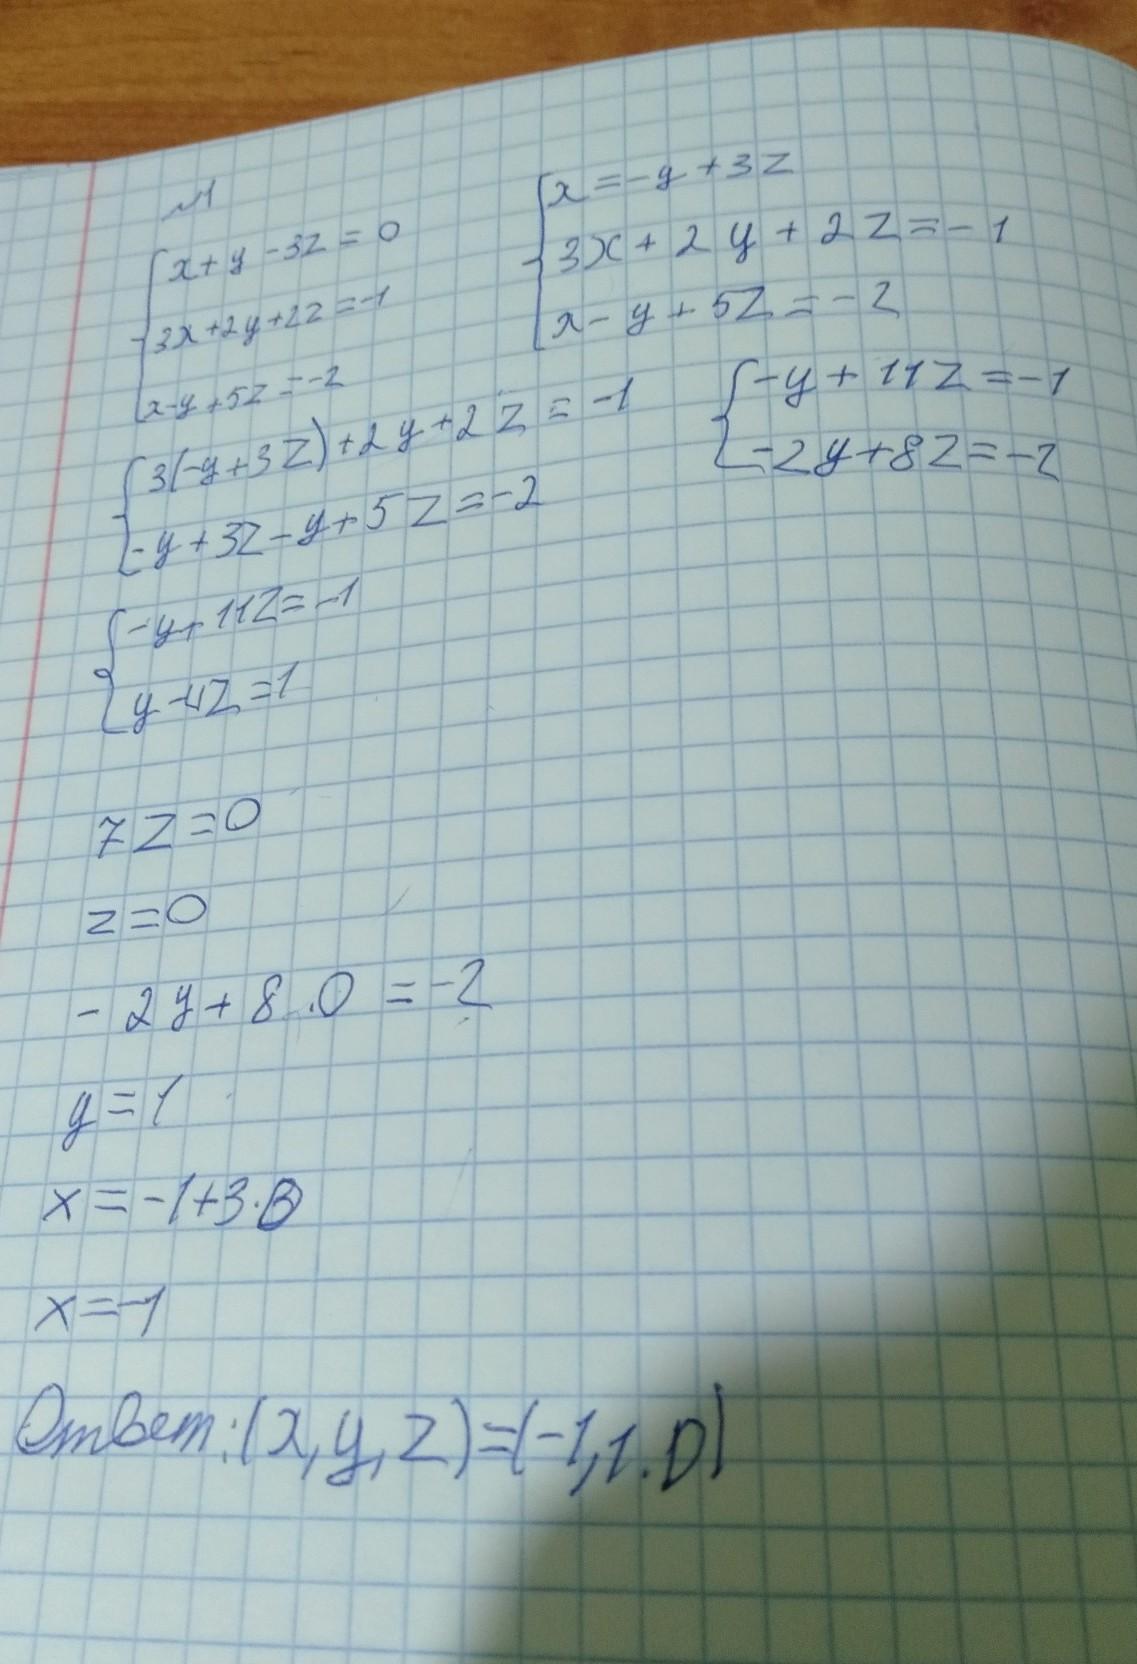 №1
x+y-3z=0
3x+2y+2z=-1
x-y+5z=-2
x=-y+3z
3x+2y+2z=-1
x-y+5z=-2
3(-y+3z)+2y+2z=-1
-y+3z-y+5z=-2
-y+11z=-1
-2y+8z=-2
-y+11z=-1
y-4z=1
7z=0
z=0
-2y+8.0=-2
y=1
x=-1+3·0
x=-1
Ответ:(x,y,z)=(-1,1.0)